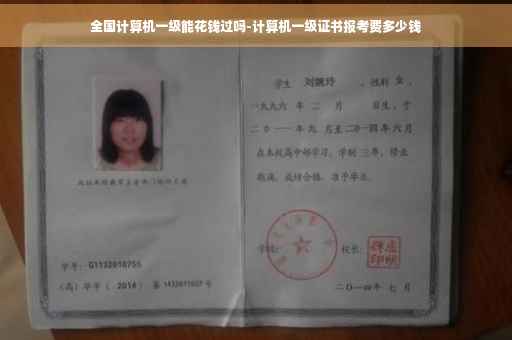 全国计算机一级能花钱过吗-计算机一级证书报考要多少钱
学生 刘婉玲 ，性别 女 ，
一九九六 年 二 月 日生，于
二〇一一 年 九 月至 二〇一四 年 六 月
在本校高中部学习，学制 三 年，修业
期满，成绩合格，准予毕业。
学号： G1132010755
（高）毕字（ 2014 ）第 1432011607 号
学校：
校长：
二〇一四年 七 月